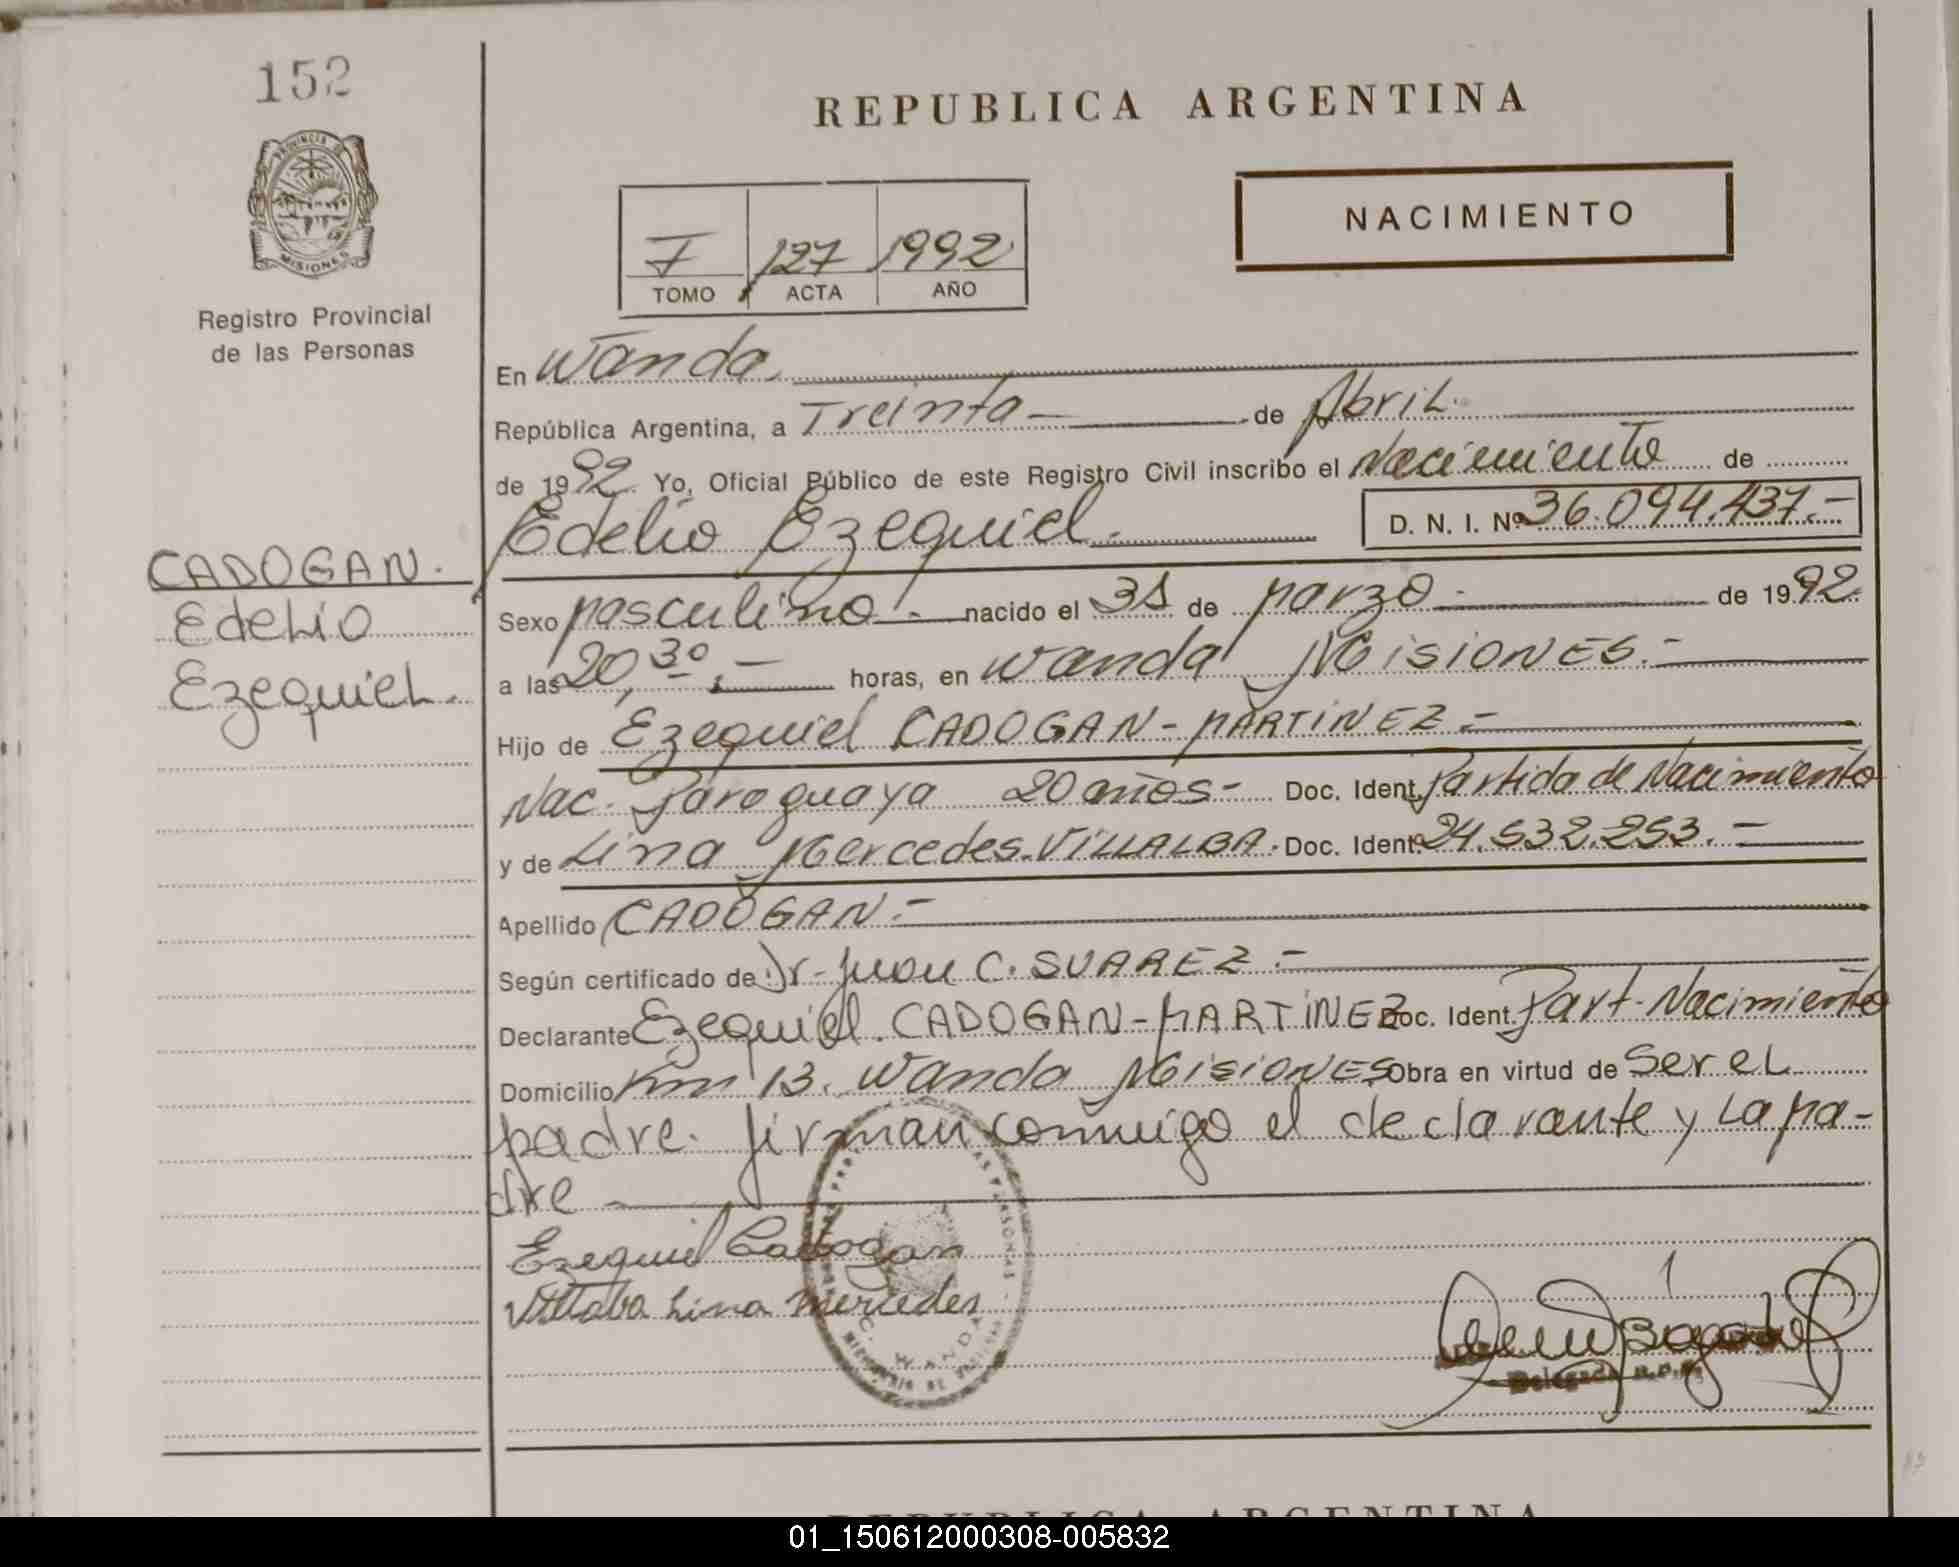 152
PROVINCIA DE
MISIONES
Registro Provincial
de las Personas
CADOGAN.
Edelio
Ezequiel.
REPUBLICA ARGENTINA
NACIMIENTO
I 127 1992
TOMO ACTA AÑO
En Wanda.
República Argentina, a Treinta — de Abril.
de 1992. Yo, Oficial Público de este Registro Civil inscribo el Nacimiento de
Edelio Ezequiel. D. N. I. Nº 36.094.437.-
Sexo Masculino.- nacido el 31 de Marzo - de 1992.
a las 20,30.- horas, en Wanda Misiones.-
Hijo de Ezequiel CADOGAN-MARTINEZ.-
Nac. Paraguaya 20 años- Doc. Ident. Partida de Nacimiento
y de Lina Mercedes VILLALBA. Doc. Ident. 24.532.253.-
Apellido CADOGAN.-
Según certificado de Dr. Juan C. SUAREZ.-
Declarante Ezequiel CADOGAN-MARTINEZ Doc. Ident. Part. Nacimiento
Domicilio Km 13. Wanda Misiones Obra en virtud de Ser el
padre. firman conmigo el declarante y la ma-
dre —
Ezequiel Cadogan
Villalba Lina Mercedes
WANDA
Delegada R.P.P.
REPUBLICA ARGENTINA
01_150612000308-005832